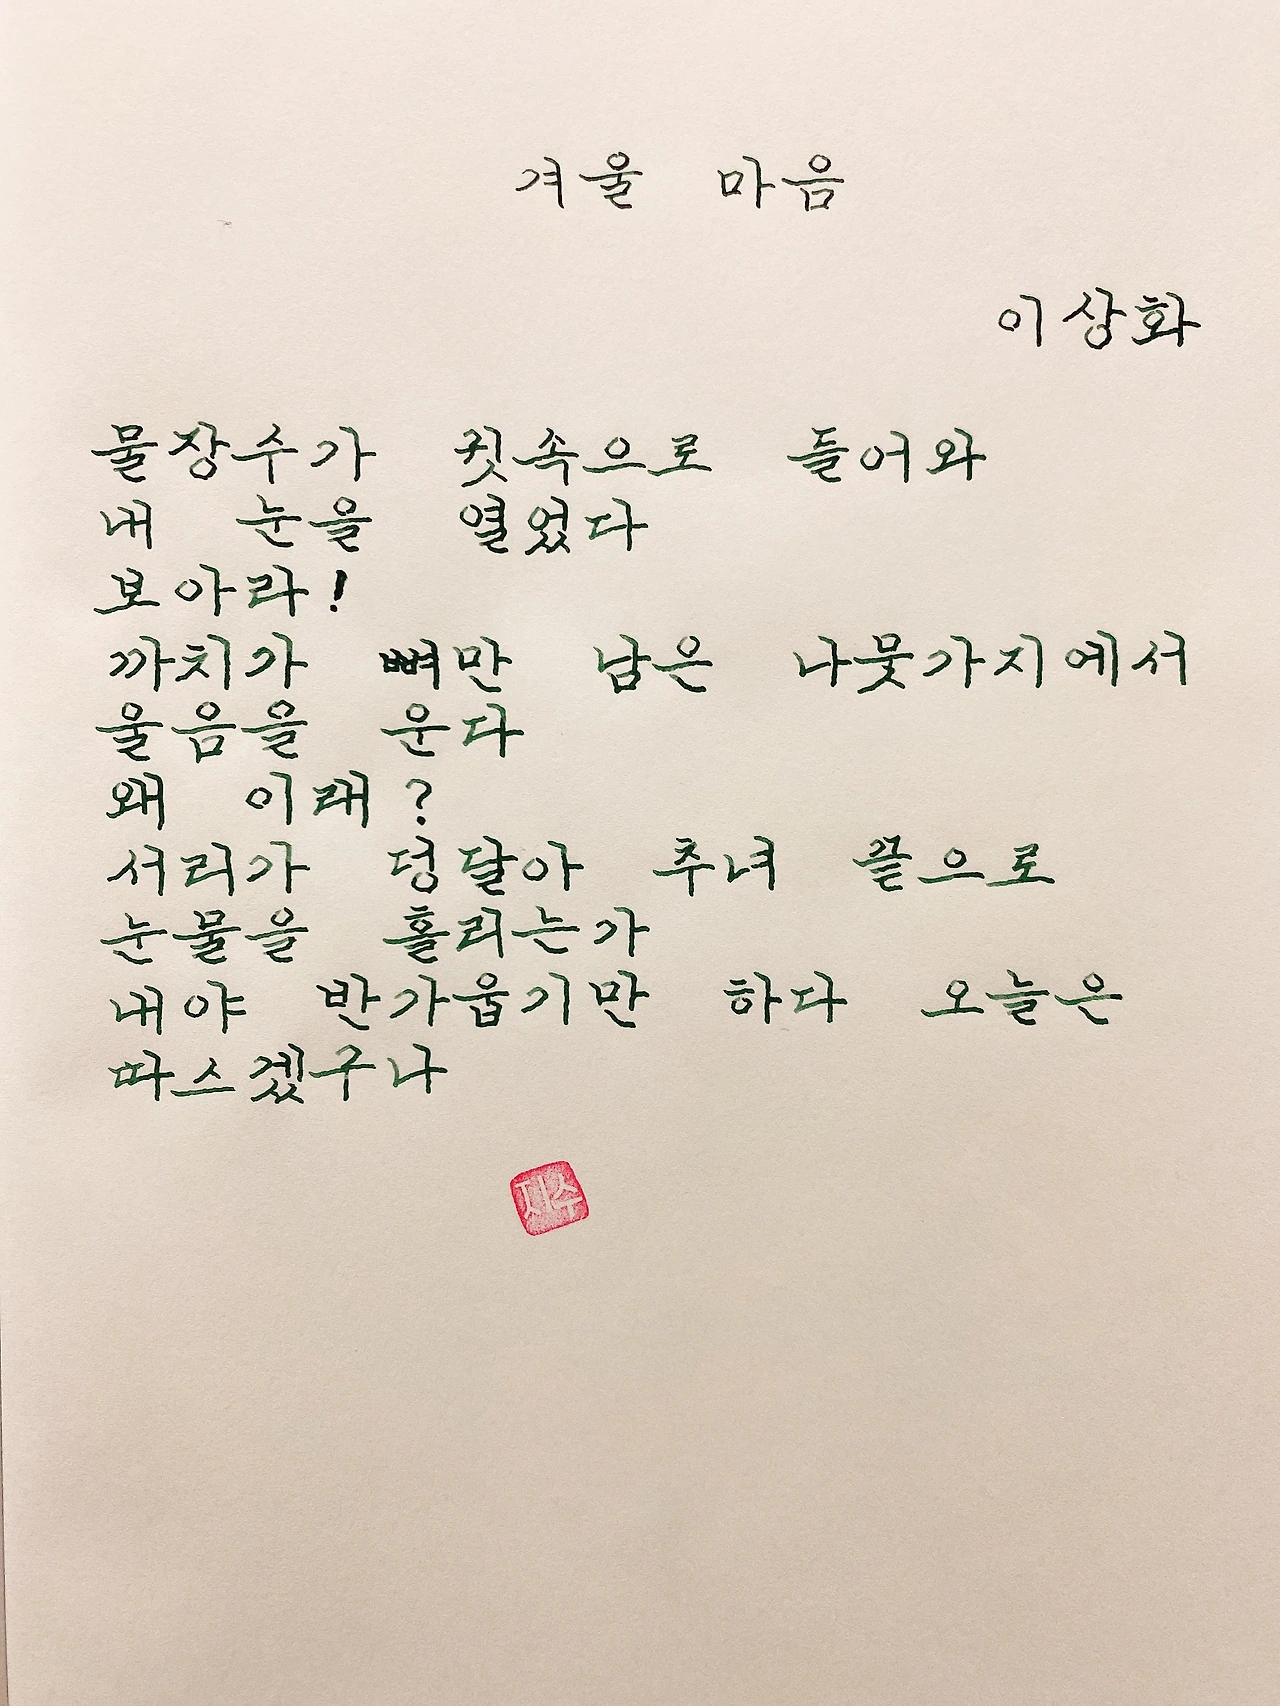 겨울 마음
이상화
물장수가 귓속으로 들어와
내 눈을 열었다
보아라!
까치가 뼈만 남은 나뭇가지에서
울음을 운다
왜 이래?
서리가 덩달아 추녀 끝으로
눈물을 흘리는가
내야 반가웁기만 하다 오늘은
따스겠구나
지수